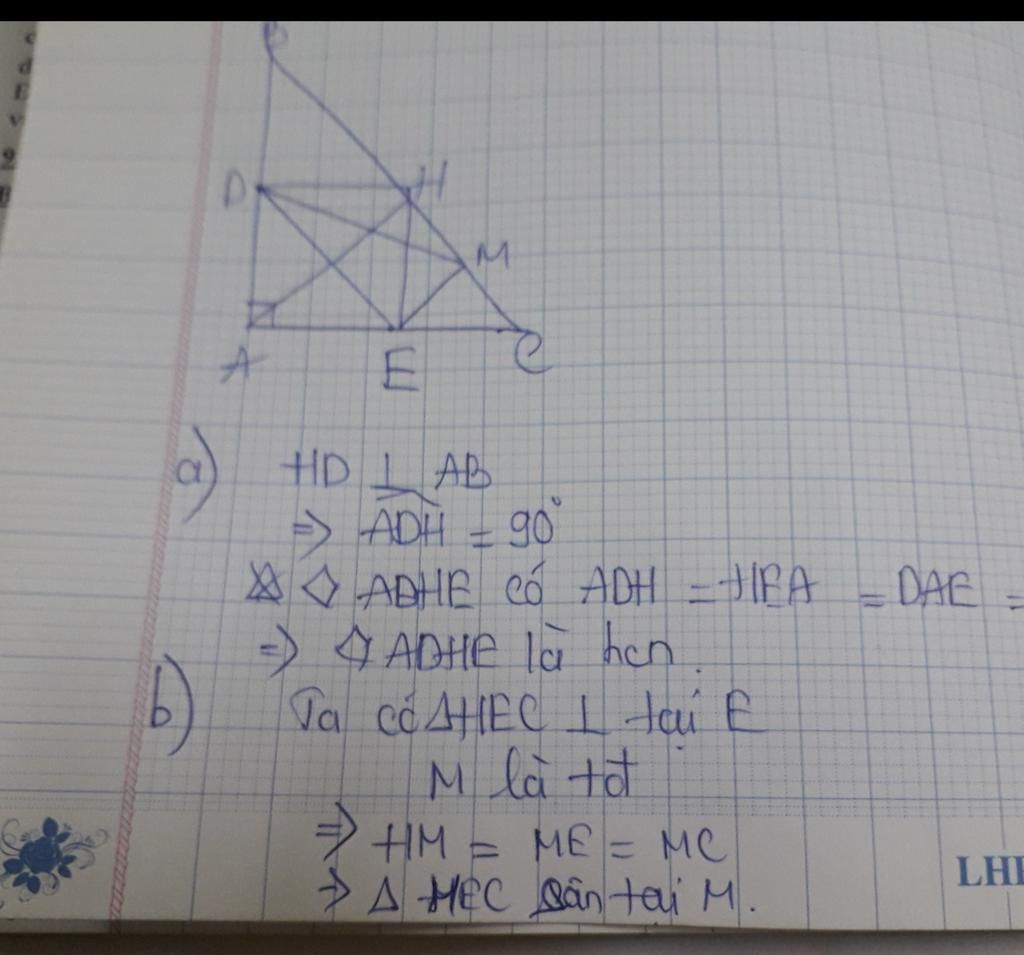 D
H
M
A
E
C
a) HD ⊥ AB
=> ADH = 90°
◇ ADHE có ADH = HEA = DAE =
=> ◇ ADHE là hcn.
b) Ta có ΔHEC ⊥ tại E
M là tđ
=> HM = ME = MC
=> Δ MEC cân tại M.
LHE